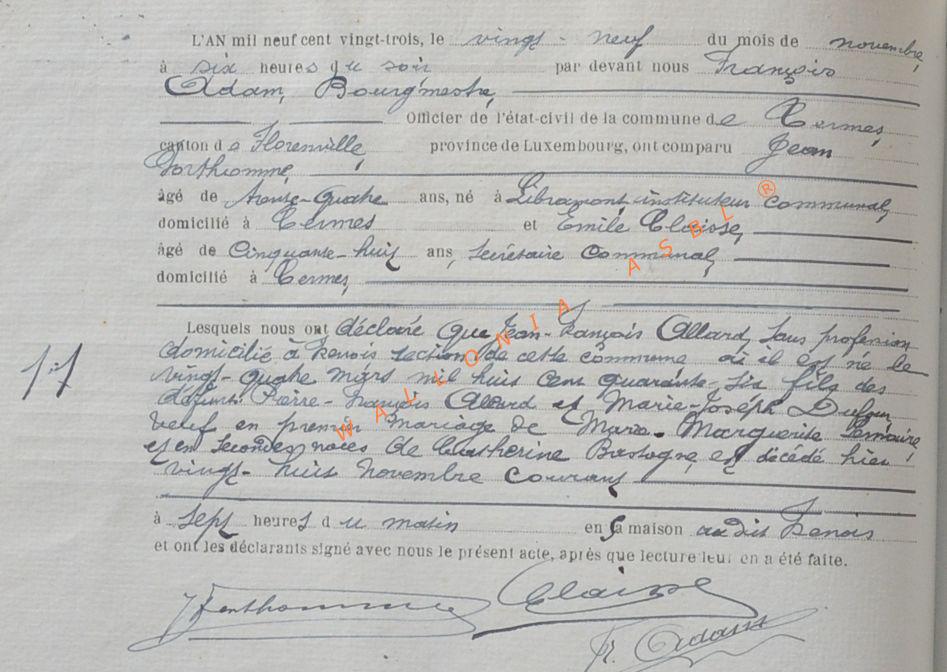 L'AN mil neuf cent vingt-trois, le vingt-neuf du mois de novembre,
à six heures du soir par devant nous François
Adam, Bourgmestre,
Officier de l'état-civil de la commune de Termes,
canton de Florenville, province de Luxembourg, ont comparu Jean
Porthomme,
âgé de trente-quatre ans, né à Libramont, instituteur communal,
domicilié à Termes et Emile Claisse,
âgé de Cinquante-huit ans, Secrétaire Communal,
domicilié à Termes,
Lesquels nous ont déclaré que Jean-François Allard, sans profession
domicilié à Frenois section de cette commune où il est né le
vingt-quatre mars mil huit cent quarante-six fils des
défunts Pierre-François Allard et Marie-Joséph Dufour,
veuf en premier mariage de Marie-Marguerite Lemaire,
et en secondes noces de Catherine Bastogne, est décédé hier
vingt-huit novembre courant
à sept heures du matin en sa maison audit Frenois
et ont les déclarants signé avec nous le présent acte, après que lecture leur en a été faite.
Claisse
Fr. Adam
WALLONIA ASBL ®